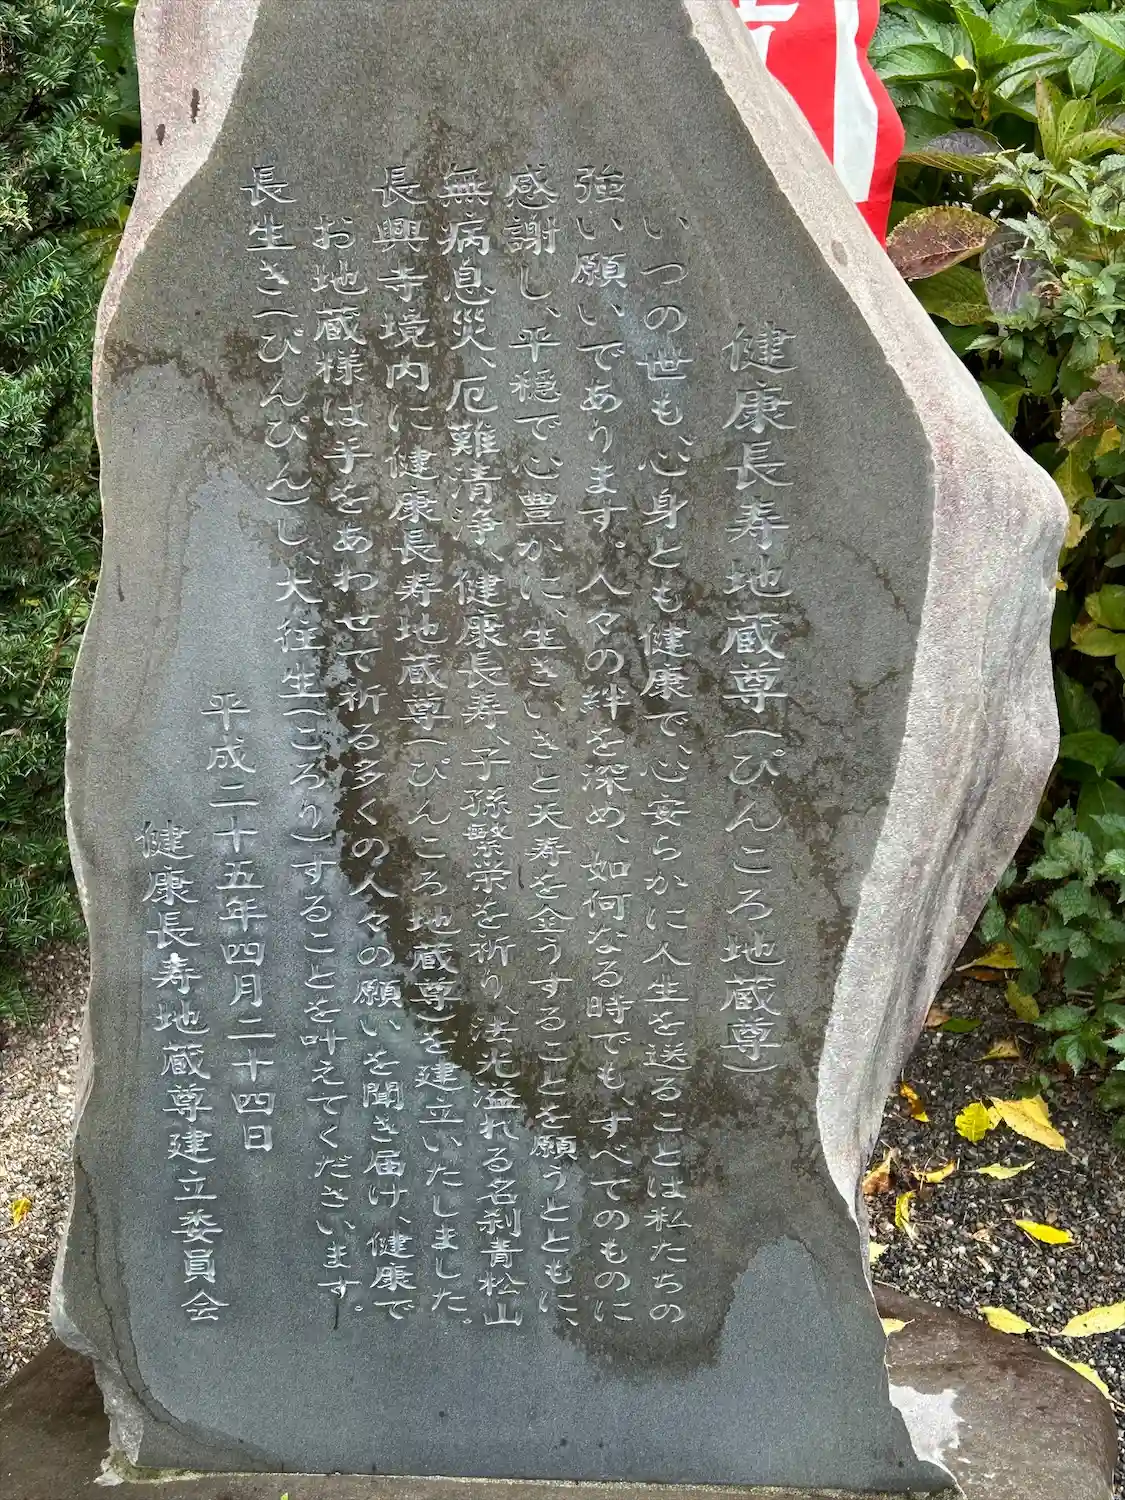 健康長寿地蔵尊(ぴんころ地蔵尊)
いつの世も、心身とも健康で、心安らかに人生を送ることは私たちの
強い願いであります。人々の絆を深め、如何なる時でも、すべてのものに
感謝し、平穏で心豊かに、生きいきと天寿を全うすることを願うとともに、
無病息災、厄難清浄、健康長寿、子孫繁栄を祈り、法光溢れる名刹青松山
長興寺境内に健康長寿地蔵尊(ぴんころ地蔵尊)を建立いたしました。
お地蔵様は手をあわせて祈る多くの人々の願いを聞き届け、健康で
長生き(ぴんぴん)し、大往生(ころり)することを叶えてくださいます。
平成二十五年四月二十四日
健康長寿地蔵尊建立委員会